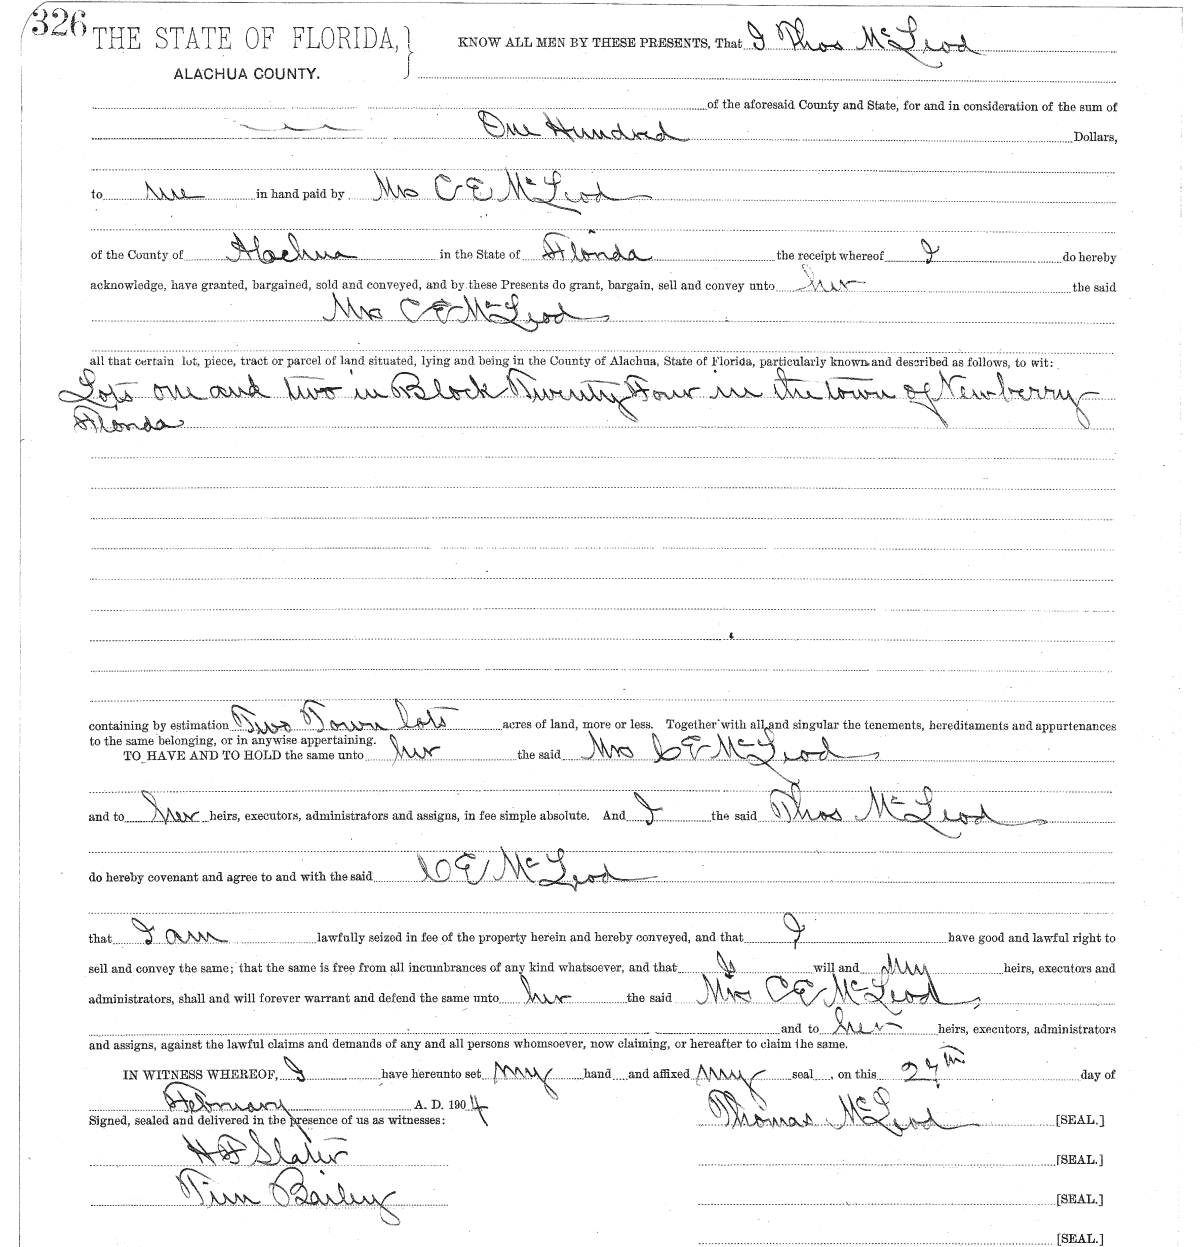 326
THE STATE OF FLORIDA,
ALACHUA COUNTY.
KNOW ALL MEN BY THESE PRESENTS, That I Thos McLeod
of the aforesaid County and State, for and in consideration of the sum of
One Hundred Dollars,
to me in hand paid by Mrs C E McLeod
of the County of Alachua in the State of Florida the receipt whereof I do hereby
acknowledge, have granted, bargained, sold and conveyed, and by these Presents do grant, bargain, sell and convey unto her the said
Mrs C E McLeod
all that certain lot, piece, tract or parcel of land situated, lying and being in the County of Alachua, State of Florida, particularly known and described as follows, to wit:
Lots one and two in Block Twenty Four in the town of Newberry
Florida
containing by estimation Two Town lots acres of land, more or less. Together with all and singular the tenements, hereditaments and appurtenances
to the same belonging, or in anywise appertaining.
TO HAVE AND TO HOLD the same unto her the said Mrs C E McLeod
and to her heirs, executors, administrators and assigns, in fee simple absolute. And I the said Thos McLeod
do hereby covenant and agree to and with the said C E McLeod
that I am lawfully seized in fee of the property herein and hereby conveyed, and that I have good and lawful right to
sell and convey the same; that the same is free from all incumbrances of any kind whatsoever, and that I will and my heirs, executors and
administrators, shall and will forever warrant and defend the same unto her the said Mrs C E McLeod
and to her heirs, executors, administrators
and assigns, against the lawful claims and demands of any and all persons whomsoever, now claiming, or hereafter to claim the same.
IN WITNESS WHEREOF, I have hereunto set my hand and affixed my seal, on this 27th day of
February A. D. 1904
Signed, sealed and delivered in the presence of us as witnesses:
Thomas McLeod [SEAL.]
H F Slater [SEAL.]
Tim Bailey [SEAL.]
[SEAL.]